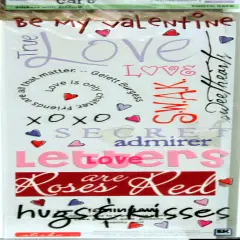 Be my valentine
True
Love
LOVE
Love is only chatter, Friends are all that matter. - Gelett Burgess
XOXO
SWAK
sweetheart
SECRET
admirer
Letters
LOVE
are
Roses Red
hugs & kisses